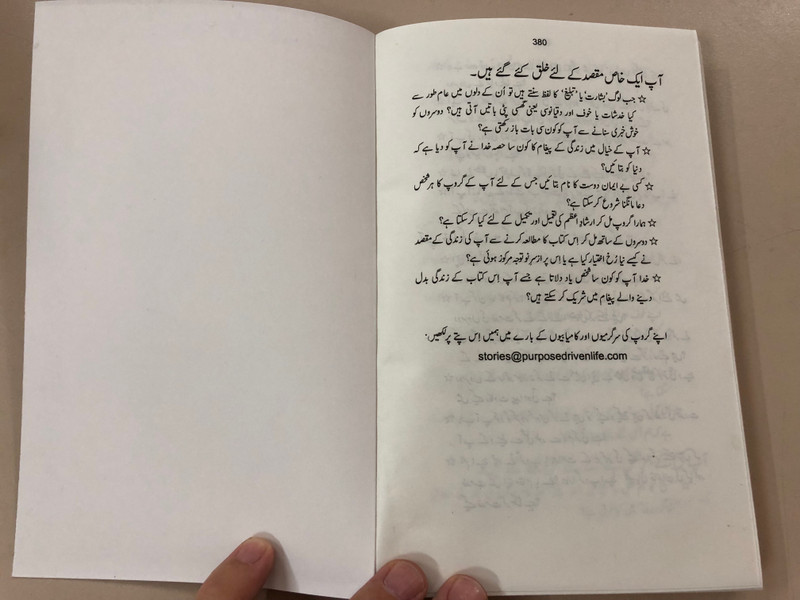 380
آپ ایک خاص مقصد کے لئے خلق کئے گئے ہیں۔
☆ جب لوگ 'بشارت' یا 'تبلیغ' کا لفظ سنتے ہیں تو اُن کے دلوں میں عام طور سے
کیا خدشات یا خوف اور دقیانوسی یعنی گھسی پٹی باتیں آتی ہیں؟ دوسروں کو
خوش خبری سنانے سے آپ کو کون سی بات باز رکھتی ہے؟
☆ آپ کے خیال میں زندگی کے پیغام کا کون سا حصہ خدا نے آپ کو دیا ہے کہ
دنیا کو بتائیں؟
☆ کسی بے ایمان دوست کا نام بتائیں جس کے لئے آپ کے گروپ کا ہر شخص
دعا مانگنا شروع کر سکتا ہے؟
☆ ہمارا گروپ مل کر ارشادِ اعظم کی تعمیل اور تکمیل کے لئے کیا کر سکتا ہے؟
☆ دوسروں کے ساتھ مل کر اِس کتاب کا مطالعہ کرنے سے آپ کی زندگی کے مقصد
نے کیسے نیا رُخ اختیار کیا ہے یا اِس پر ازسرِنو توجہ مرکوز ہوئی ہے؟
☆ خدا آپ کو کون سا شخص یاد دلاتا ہے جسے آپ اِس کتاب کے زندگی بدل
دینے والے پیغام میں شریک کر سکتے ہیں؟
اپنے گروپ کی سرگرمیوں اور کامیابیوں کے بارے میں ہمیں اِس پتے پر لکھیں:
stories@purposedrivenlife.com